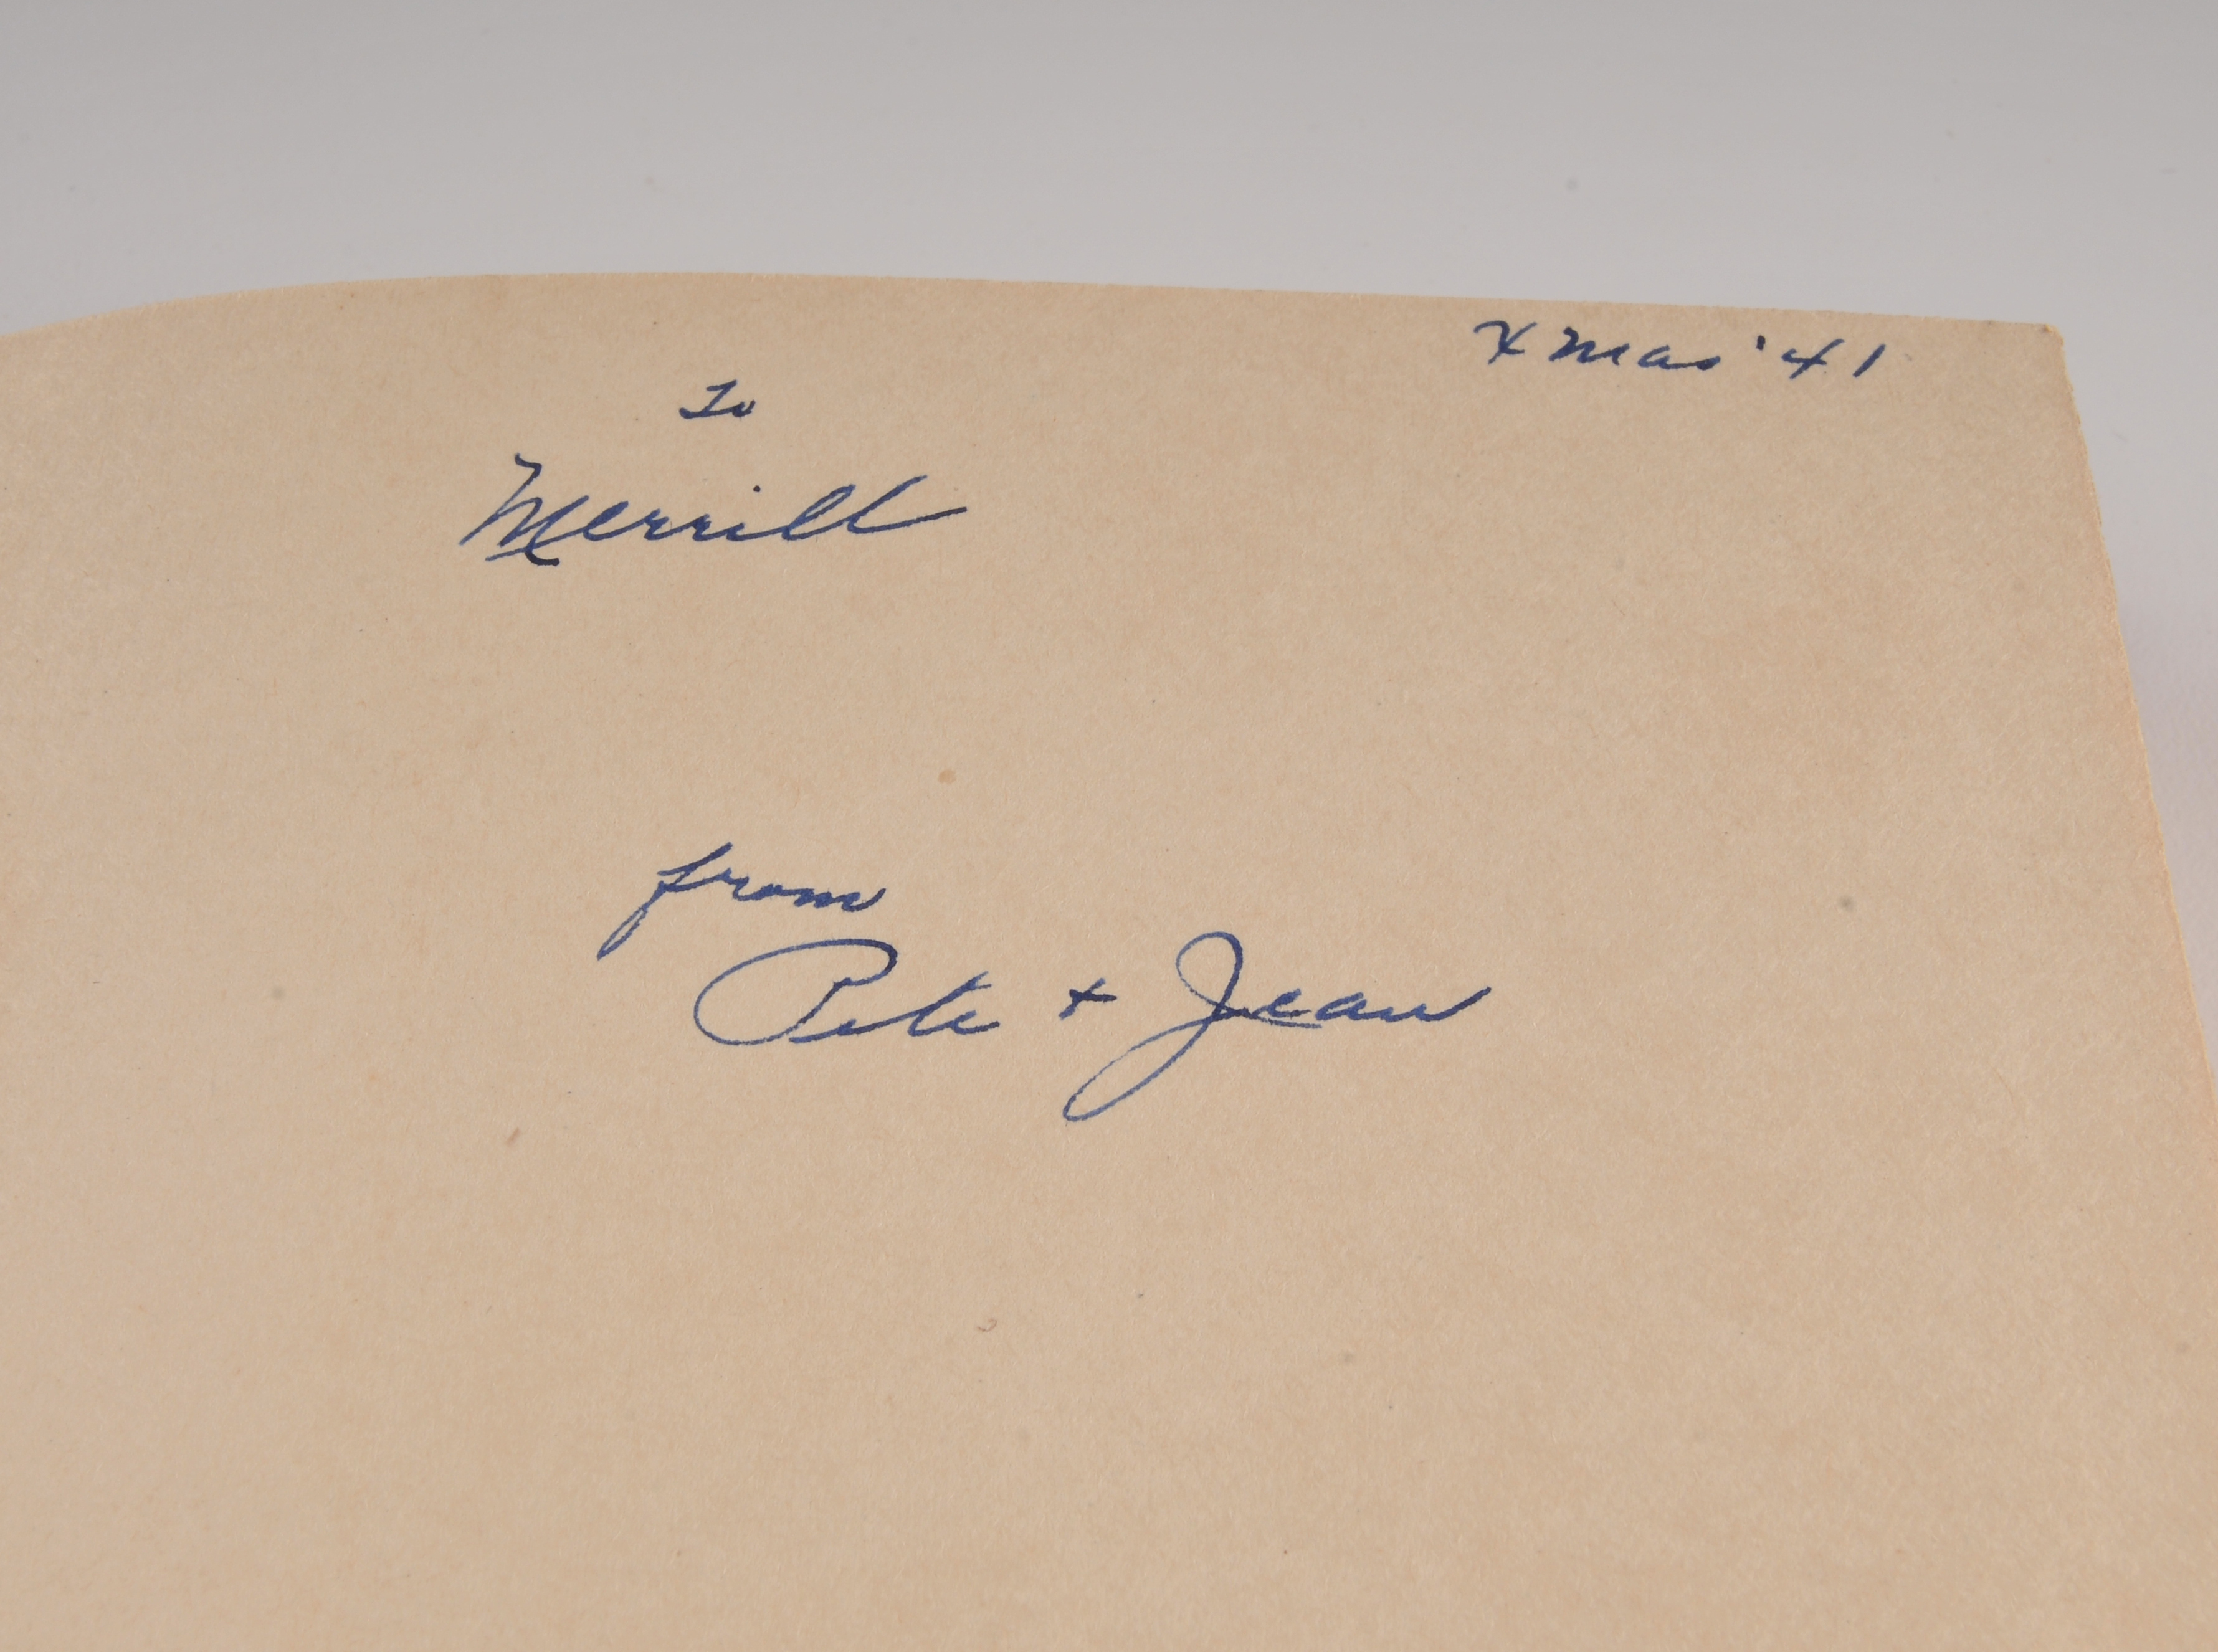 Xmas '41
To
Merrill
from
Pete + Jean